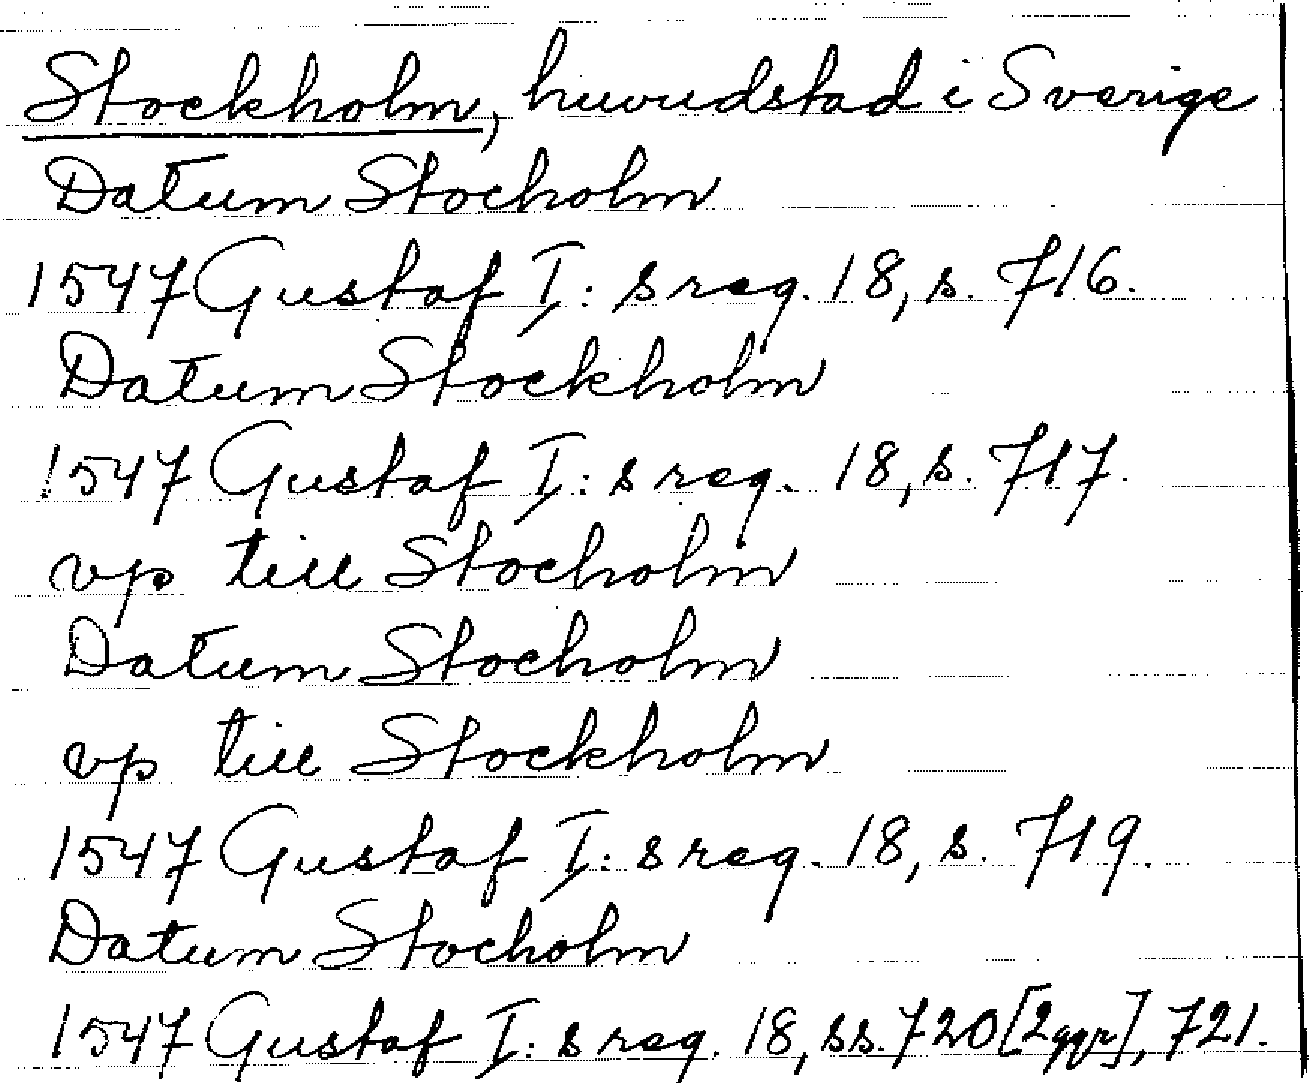 Stockholm, huvudstad i Sverige
Datum Stocholm
1547 Gustaf I: s reg. 18, s. 716.
Datum Stockholm
1547 Gustaf I: s reg. 18, s. 717.
vp till Stocholm
Datum Stocholm
vp till Stockholm
1547 Gustaf I: s reg. 18, s. 719.
Datum Stocholm
1547 Gustaf I: s reg. 18, ss. 720 [2 ggr], 721.